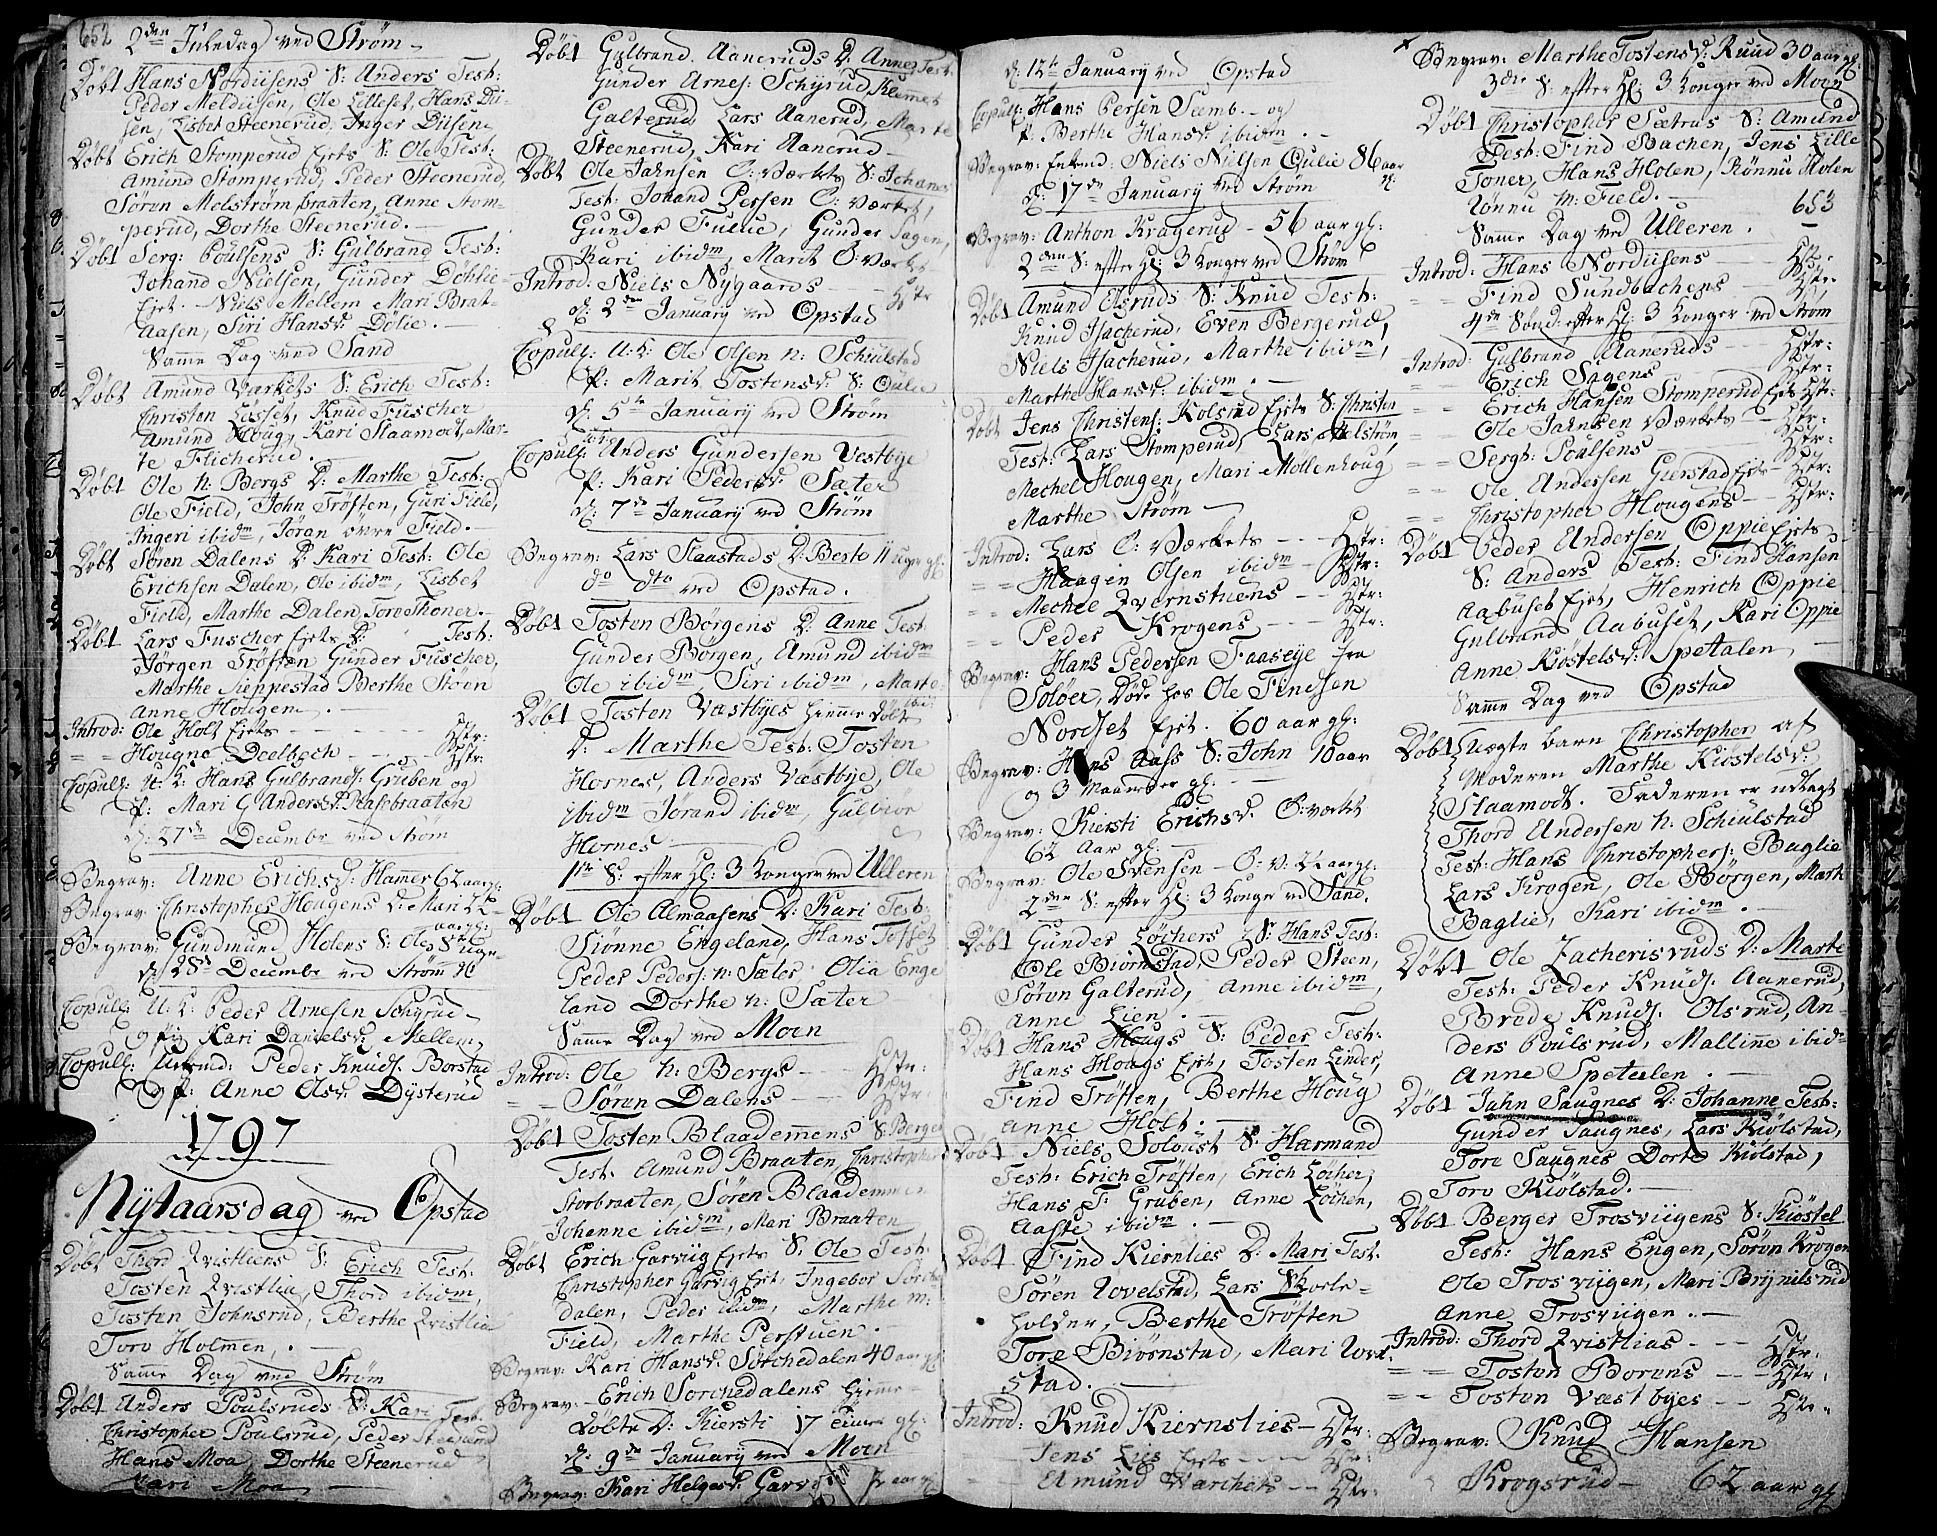 652
2den Juledag ved Strøm
Døbt Hans Nordiisens S: Anders Test:
Peder Meldiisen, Ole Lilleset, Hans Dii-
sen, Lisbet Steenerud, Inger Diisen
Døbt Erich Stomperud Ejets S: Ole Test:
Amund Stomperud, Peder Steenerud,
Søren Molstrømbraaten, Anne Stom-
perud, Dorthe Steenerud.
Døbt Serg: Poulsens S: Gulbrand Test:
Johand Nielsen, Gunder Døhlie
Ejet. Niels Mellem Mari Braat-
aasen, Siri Hansd: Dølie.
Samme Dag ved Sand
Døbt Amund Varkets S: Erich Test:
Christen Losset, Knud Fuscher
Amund Houg, Kari Slaamoet, Mar-
te Flicherud.
Døbt Ole n: Bergs D: Marthe Test:
Ole Field, John Trøften, Guri Field,
Ingeri ibidm, Jøran øvre Field.
Døbt Søren Dalens D: Kari Test: Ole
Erichsen Dalen, Ole ibidm, Lisbet
Field, Marthe Dalen, Tore Thoner.
Døbt Lars Fuscher Ejets D: Test:
Jørgen Trøften Gunder Fuscher,
Marthe Sieppestad Berthe Steen
Anne Hougen.
Introd: Ole Holt Ejets Hstr:
Hougne Deelbech Hstr:
Copul: U: K: Hans Gulbrands: Gruben og
P: Mari G Andersd: Aasebraaten
D: 27de Decembr ved Strøm
Begrav: Anne Erichsd: Hamer 62 aar gl:
Begrav: Christopher Hougens D: Mari
Begrav: Gundmund Holens S: Ole 8 uger
D: 28de Decembr ved Strøm
Copul: U: K: Peder Arnesen Schyrud
og Pig: Kari Danielsd: Mellem
Copul: Peder Knuds: Borstad
og P: Anne Olsd: Dysterud
1797
Nytaarsdag ved Opstad
Døbt Thord Qvistliens S: Erich Test:
Tosten Qvistlie, Thord ibidm,
Tosten Johnsrud, Berthe Qvistlie
Toro Holmen,
Samme Dag ved Strøm
Døbt Anders Poulsruds D: Kari Test:
Christopher Poulsrud, Peder Steenerud
Hans Moa, Dorthe Steenerud
Mari Moa
Døbt Gulbrand Aaneruds D: Anne Test:
Gunder Arnes: Schyrud, Klemmet
Galterud, Lars Aanerud, Marte
Steenerud, Kari Aanerud
Døbt Ole Jahnsen O: Værkets S: Johannes
Test: Johand Persen O: værket,
Gunder Fulue, Gunder Sagen,
Kari ibidm, Marit O: Værket
Introd: Niels Nygaards Hstr
D: 2den January ved Opstad
Copul: U: K: Ole Olsen n: Schiulstad
P: Marit Tostensd: S: Oulie
D: 5te January ved Strøm
Copul: Anders Gundersen Vestbye
P: Kari Pedersd: Sæter
D: 7de January ved Strøm
Begrav: Lars Slaastads D: Berte 11 uger gl:
do dto ved Opstad.
Døbt Tosten Børgens D: Anne Test:
Gunder Børgen, Amund ibidm
Ole ibidm, Siri ibidm, Marte ibi:
Døbt Tosten Vastbyes hiemmedøbt
D: Marthe Test: Tosten
Hornes, Anders Vastbye, Ole
ibidm Jørand ibidm, Gulbior
Hornes
1ste S: efter Hl: 3 Konger ved Ulleren
Døbt Ole Almaasens D: Kari Test:
Siønne Engeland, Hans Tosset
Peder Peders: n: Sæter Olia Enge
land Dorthe n: Sæter
Samme Dag ved Moen
Introd: Ole n: Bergs Hstr:
Søren Dalens Hstr:
Døbt Tosten Blaademmens S: Berger
Test: Amund Braaten, Christopher
Storbraaten, Søren Blaademmen
Johanne ibidm, Mari Braaten
Døbt Erich Garviig Ejets S: Ole Test:
Christopher Garvig Ejet, Ingebor Sorche
dalen, Peder ibidm, Marthe m:
Field, Marthe Perstuen.
Begrav: Kari Hansd: Sørchedalen 40 aar gl:
Begrav: Erich Sorchedalens hiemme-
døbte D: Kiersti 17 uger gl:
D: 9de January ved Moen
Begrav: Kari Helgesd: Garviig aar gl
D: 12te January ved Opstad
Copul: Hans Persen Sæmb. og
P: Berthe Hansd: ibidm.
Begrav: Enkmd: Niels Nilsen Oulie 86 aar gl:
D: 17de January ved Strøm
Begrav: Anthon Kragerud 56 aar gl:
2den S: efter Hl: 3 Konger ved Strøm
Døbt Amund Elsruds S: Knud Test:
Knud Hacherud, Even Bergerud,
Niels Hacherud, Marthe ibidm,
Marthe Hansd: ibidm.
Døbt Jens Christens: Kolsrud Ejets S: Christen
Test: Lars Stomperud, Lars Malstrøm,
Mechel Hougen, Mari Mollenhoug
Marthe Strøm
Introd: Lars O: Værkets Hstr:
Haagen Olsen ibidm Hstr:
Mechel Qvernstuens Hstr:
Peder Krogens Hstr:
Begrav: Hans Pedersen Faaseye fra
Soløer, døde hos Ole Findsen
Nordset Ejet. 60 aar gl:
Begrav: Hans Aass S: John 10 aar
og 3 Maaneder gl:
Begrav: Kiersti Erichsd: O: værket
62 Aar gl:
Begrav: Ole Svensen O: V: 22 aar gl:
2den S: efter Hl: 3 Konger ved Sand.
Døbt Gunder Løchers S: Hans Test:
Ole Biørnstad, Peder Steen,
Søren Galterud, Anne ibidm,
Anne Lien.
Døbt Hans Hougs S: Peder Test:
Hans Hougs Ejet, Tosten Linder,
Find Trøften, Berthe Houg
Anne Holt.
Døbt Niels Solvust S: Harmand
Test: Erich Trøften, Erich Løcher,
Hans F: Gruben, Anne Løchen,
Aaste ibidm.
Døbt Find Kiernlies D: Mari Test:
Søren Uovelstad, Lars Skole-
holder, Berthe Trøften
Tore Biørnstad, Mari Uovel-
stad.
Introd: Knud Kiernslies Hstr:
Jens Lies Ejets
Amund Warchets Hstr:
Begrav: Marthe Tostensd: Ruud 30 aar gl:
3die S: efter Hl: 3 Konger ved Moen
Døbt Christopher Sætrus S: Amund
Test: Find Bachen, Jens Lille
Toner, Hans Holen, Rønnu Holen
Rønnu m: Field.
653
Samme Dag ved Ulleren.
Introd: Hans Nordiisens Hstr:
Find Sundbachens Hstr:
4de Sønd: efter Hl: 3 Konger ved Strøm
Introd: Gulbrand Aaneruds Hstr:
Erich Sagens Hstr:
Erich Hansen Stomperud Ejet Hstr:
Ole Jahnsen Værkets Hstr:
Sergh: Poulsens Hstr:
Ole Andersen Gierstad Ejets Hstr:
Christopher Hougens Hstr:
Døbt Peder Andersen Oppie Ejets
S: Anders Test: Find Hansen
Aabuset Ejet, Henrich Oppie
Gulbrand Aabuset, Kari Oppie
Anne Kiøstelsd: Spetalen
Samme Dag ved Opstad
Døbt Uægte barn Christopher af
Moderen Marthe Kiøstelsd:
Slaamodt. Faderen er udlagt
Thord Andersen n: Schiulstad
Test: Hans Christophers: Baglie
Lars Krogen, Ole Børgen, Marth
Baglie, Kari ibidm.
Døbt Ole Zacherisruds D: Marte
Test: Peder Knuds: Aanerud,
Brede Knuds: Olsrud, An-
ders Poulsrud, Malline ibidm
Anne Spetalen.
Døbt Jahn Saugnes D: Johanne Test:
Gunder Saugnes, Lars Kiølstad,
Tore Saugnes Dorte Kiølstad,
Toro Kiølstad.
Døbt Berger Trosviigens S: Kiøstel
Test: Hans Engen, Søren Krogen
Ole Trosviigen, Mari Brynilsrud
Anne Trosviigen.
Introd: Thord Qvistlies Hstr:
Tosten Borens Hstr:
Tosten Væstbyes Hstr:
Begrav: Knud Hansen
Krogsrud 62 aar gl